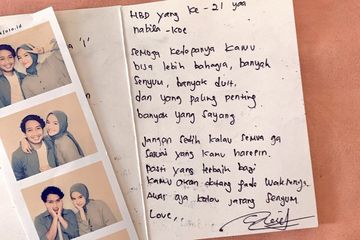 HBD yang ke-21 yaa
nabila-koe
Semoga kedepanya kamu
bisa lebih bahagia, banyak
senyum, banyak duit,
dan yang paling penting
banyak yang sayang
Jangan sedih kalau semua ga
sesuai yang kamu harepin.
Pasti yang terbaik bagi
kamu akan datang pada waktunya.
Awas aja kalau jarang senyum
Love,,